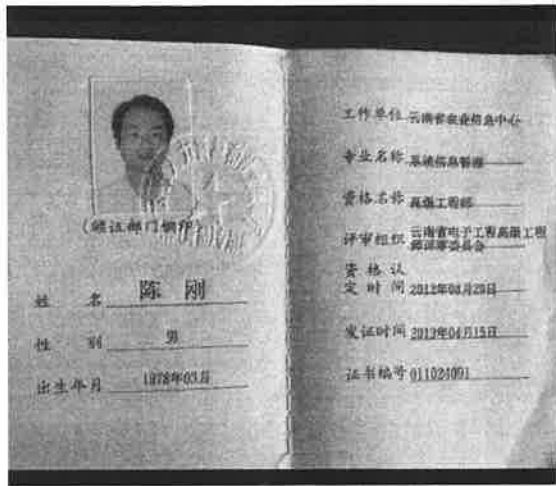 (颁证部门钢印)
姓 名 陈 刚
性 别 男
出生年月 1978年03月
工作单位 云南省农业信息中心
专业名称
资格名称 高级工程师
评审组织 云南省电子工程高级工程
师评审委员会
资 格 认
定 时 间 2012年08月29日
发证时间 2013年04月15日
证书编号 011024091